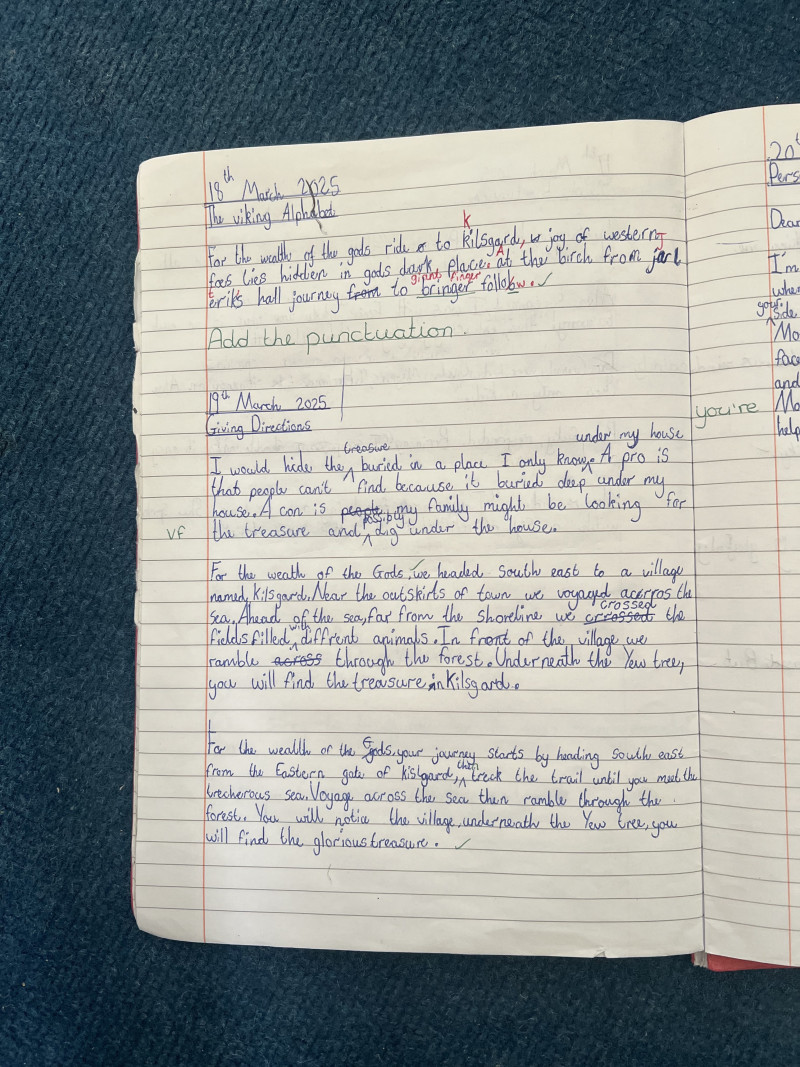 18th March 2025
The viking Alphabet
k
For the wealth of the gods ride to kilsgard, joy of western
foes lies hidden in gods dark place. At the birch from jarl
giant ringer
eriks hall journey from to bringer follow.
Add the punctuation.
19th March 2025
Giving Directions
treasure under my house
I would hide the buried in a place I only know. A pro is
that people can't find because it buried deep under my
house. A con is people my family might be looking for
possibly
vf the treasure and dig under the house.
For the weath of the Gods, we headed South east to a village
named, Kilsgard. Near the outskirts of town we voyaged acarros the
sea. Ahead of the sea, far from the shoreline we crrossed the
crossed
with
fields filled diffrent animals. In front of the village we
ramble across through the forest. Underneath the Yew tree,
you will find the treasure in Kilsgard.
For the weallth of the Gods, your journey starts by heading South east
then
from the Eastern gate of kislgard, treck the trail until you meet the
trecherous sea. Voyage across the sea then ramble through the
forest. You will notice the village, underneath the Yew tree, you
will find the glorious treasure.
20t
Pers
Dear
I'm
when
your
side
Mo
face
and
you're Mo
help